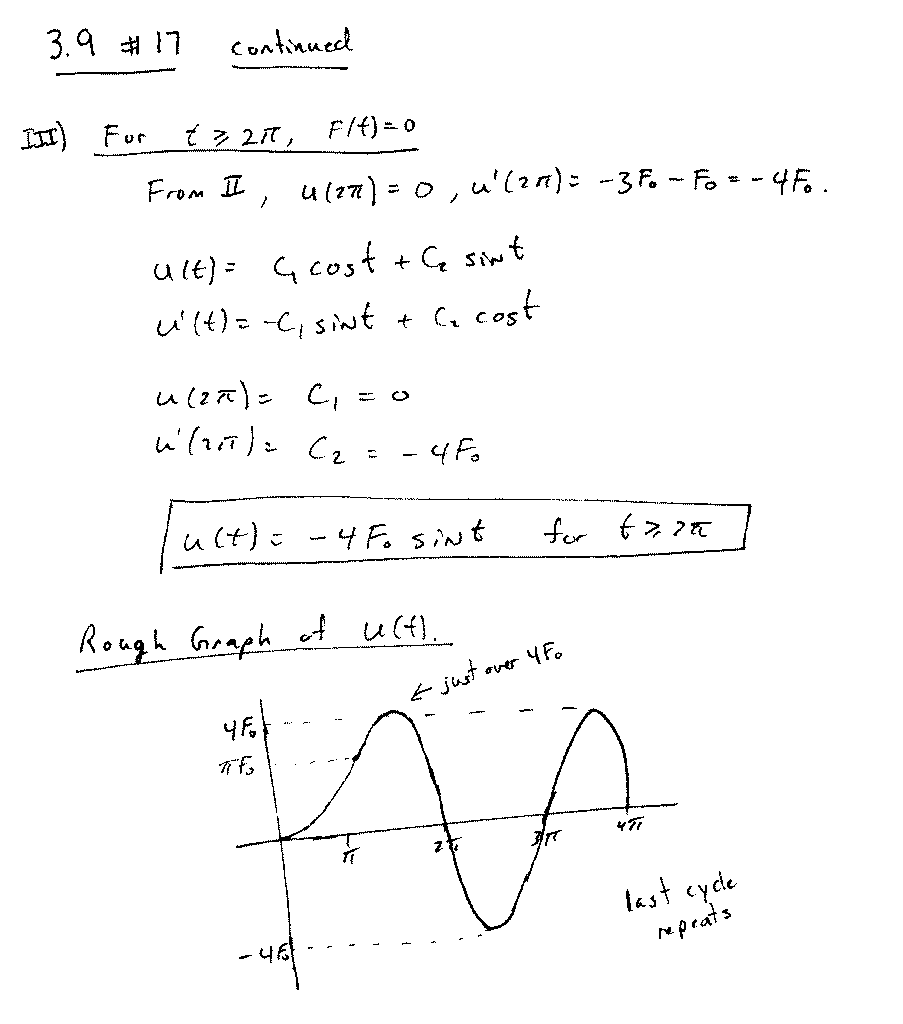 3.9 # 17 continued
III) For t ≥ 2π, F(t)=0
From II, u(2π) = 0, u'(2π) = -3F₀ - F₀ = -4F₀.
u(t) = C₁ cost + C₂ sint
u'(t) = -C₁ sint + C₂ cost
u(2π) = C₁ = 0
u'(2π) = C₂ = -4F₀
u(t) = -4F₀ sint for t ≥ 2π
Rough Graph of u(t).
← just over 4F₀
4F₀
πF₀
π 2π 3π 4π
last cycle
repeats
-4F₀